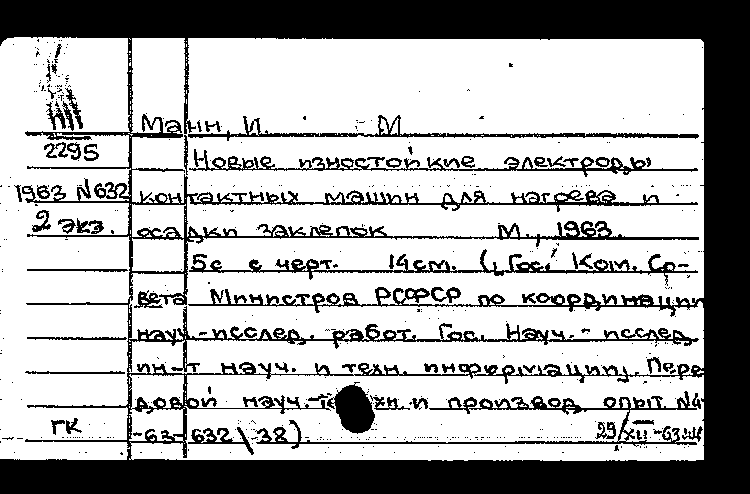 Манн, И. М
2295
Новые изностойкие электроды
1963 N632 контактных машин для нагрева и
2 экз. осадки заклепок М., 1963.
5с с черт. 14см. (Гос. Ком. Со-
вета Министров РСФСР по координации
науч.-исслед. работ. Гос. Науч.-исслед.
ин-т науч. и техн. информации. Пере
довой науч.-техн. и производ. опыт. N4
ГК -63-632\38). 29/XII-63